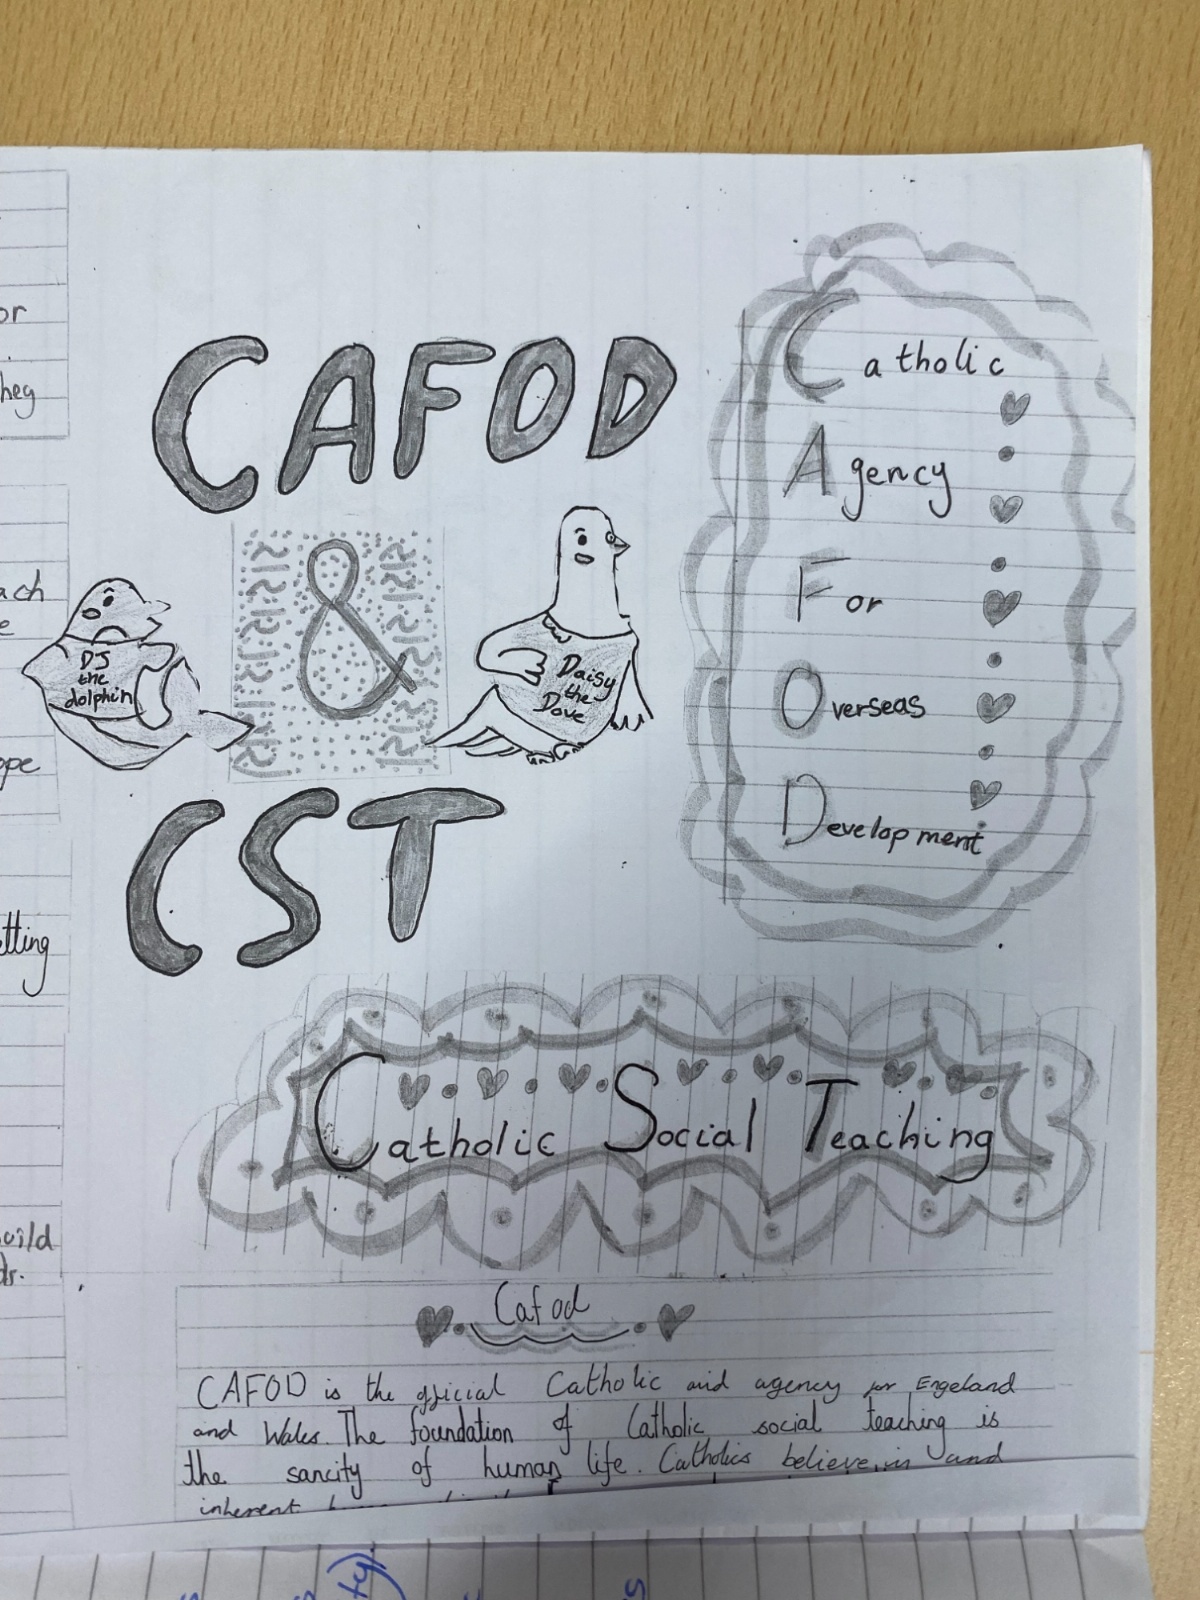 or
heg
ach
e
ope
tting
uild
ds.
CAFOD
&
CST
DJ
the
dolphin
Daisy
the
Dove
Catholic
Agency
For
Overseas
Development
Catholic Social Teaching
Cafod
CAFOD is the official Catholic aid agency for Engeland
and Wales. The foundation of Catholic social teaching is
the sancity of human life. Catholics believe in and
inherent
ty).